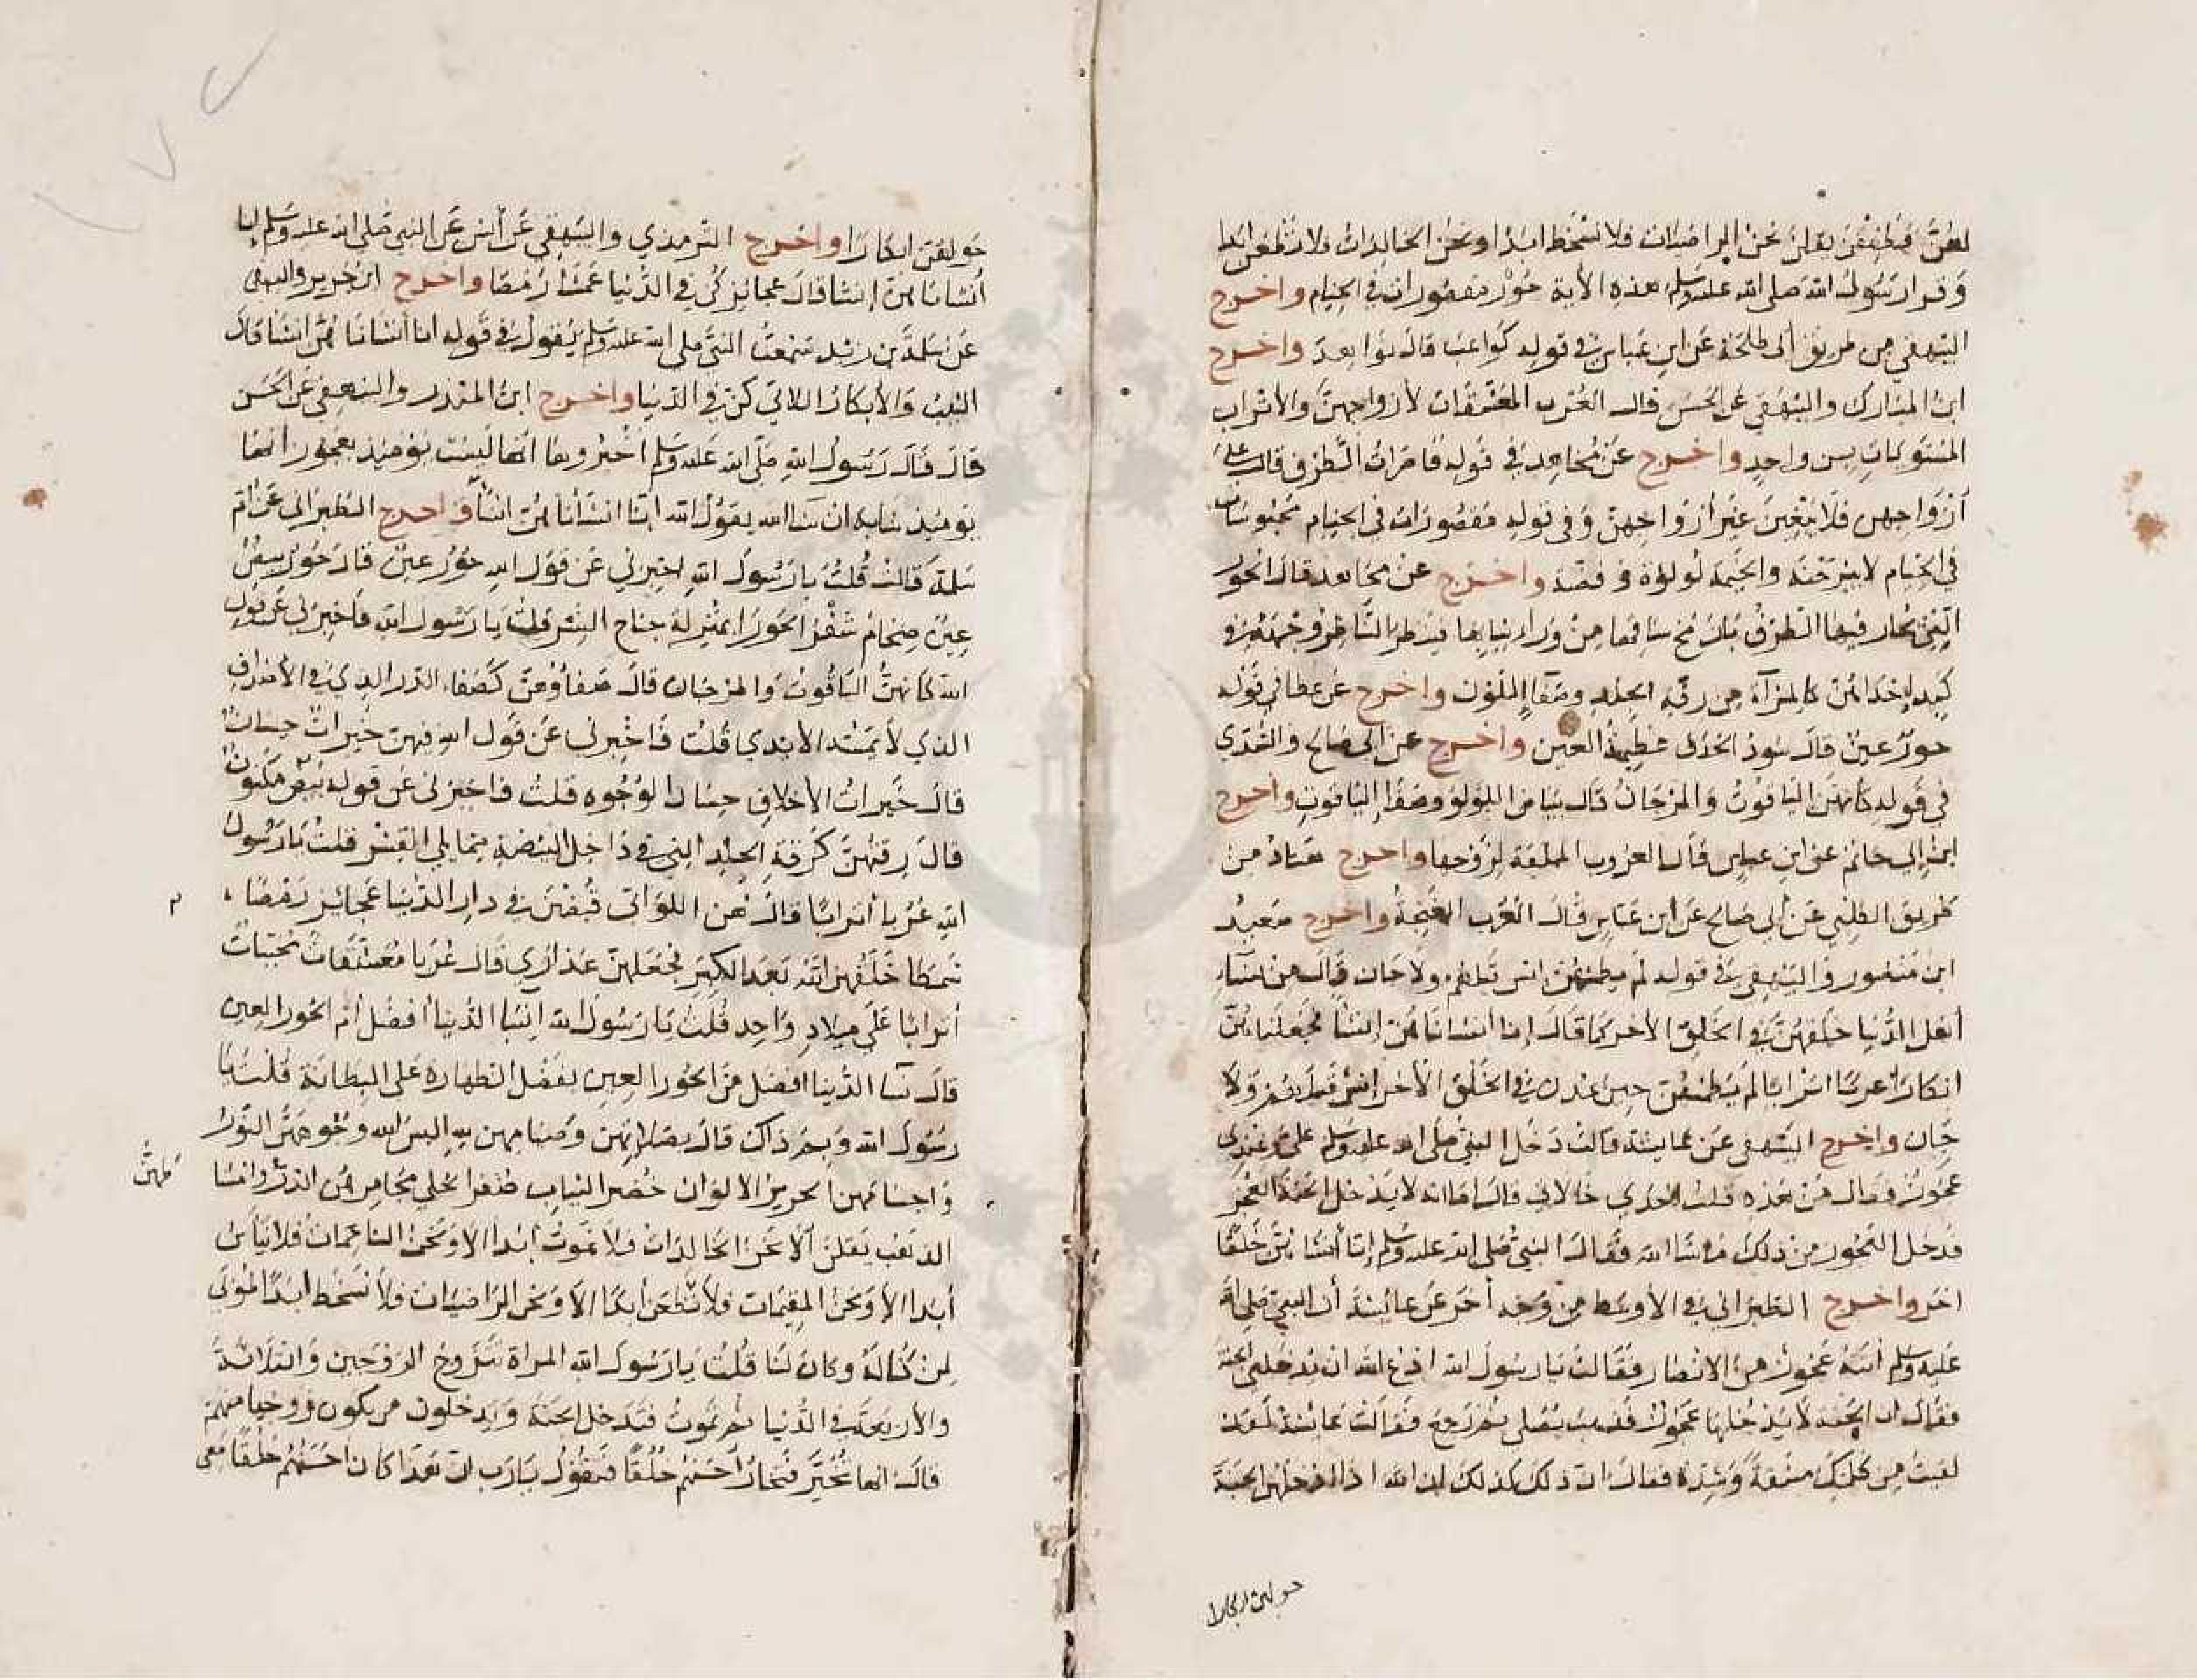 لهن فيطفقن يقلن نحن الراضيات فلا نسخط ابدا ونحن الخالدات فلا نظعن ابدا
وقرا رسول الله صلى الله عليه وسلم هذه الآية حور مقصورات في الخيام واخرج
البيهقي من طريق ابي طلحة عن ابن عباس في قوله كواعب قال نواهد واخرج
ابن المبارك والبيهقي عن الحسن قال العرب المتعشقات لأزواجهن والأتراب
المستويات بسن واحد واخرج عن مجاهد في قوله قاصرات الطرف قال على
أزواجهن فلا يبغين غير أزواجهن وفي قوله مقصورات في الخيام محبوسات
في الخيام لا يبرحنه والخيمة لؤلؤة وفضة واخرج عن مجاهد قال الحور
التي يحار فيها الطرف باد مخ ساقها من وراء ثيابها فينظر الناظر وجهه في
كبد إحداهن كالمرآة من رقة الجلد وصفاء اللون واخرج عن عطا في قوله
حور عين قال سود الحدق عظيمة العين واخرج عن ابي صالح والسدي
في قوله كأنهن الياقوت والمرجان قال بياض اللؤلؤ وصفا الياقوت واخرج
ابن ابي حاتم عن ابن عباس قال العروب الملقة لزوجها واخرج هناد من
طريق الكلبي عن ابي صالح عن ابن عباس قال العرب الغنجة واخرج سعيد
ابن منصور والبيهقي في قوله لم يطمثهن انس قبلهم ولا جان قال هن من نساء
أهل الدنيا خلقهن في الخلق الأخر كما قال إنا انشاناهن إنشا فجعلناهن
ابكارا عربا اترابا لم يطمثهن حين عدن في الخلق الأخر انس قبلهم ولا
جان واخرج البيهقي عن عايشة قالت دخل النبي صلى الله عليه وسلم علي وعندي
عجوز فقال من هذه قلت احدى خالاتي قال اما انه لا يدخل الجنة العجز
فدخل العجوز من ذلك ما شا الله فقال النبي صلى الله عليه وسلم إنا أنشاناهن خلقا
اخر واخرج الطبراني في الأوسط من وجه أخر عن عائشة أن النبي صلى الله
عليه وسلم أتته عجوز من الانصار فقالت يا رسول الله ادع الله ان يدخلني الجنة
فقال ان الجنة لا يدخلها عجوز فذهب يصلي ثم رجع فقالت عائشة لقد
لقيت من كلمتك مشقة وشدة فقال ان ذلك كذلك ان الله اذا ادخلهن الجنة
حولهن ابكارا
حولهن ابكارا واخرج الترمذي والبيهقي عن أنس عن النبي صلى الله عليه وسلم إنا
أنشاناهن إنشا قال عجائز كن في الدنيا عمشا رمصا واخرج ابن جرير والبيهقي
عن سلمة بن يزيد سمعت النبي صلى الله عليه وسلم يقول في قوله انا أنشاناهن انشا قال
الثيب والأبكار اللاتي كن في الدنيا واخرج ابن المنذر والبيهقي عن الحسن
قال قال رسول الله صلى الله عليه وسلم أخبروها انها ليست يومئذ بعجوز أنها
يومئذ شابه ان الله يقول انا انشاناهن انشأ واخرج الطبراني عن ام
سلمة قالت قلت يا رسول الله اخبرني عن قول الله حور عين قال حور بيض
عين ضخام شفر الحورا بمنزلة جناح النسر قلت يا رسول الله فاخبرني عن قول
الله كانهن الياقوت والمرجان قال صفاؤهن كصفاء الدر الذي في الأصداف
الذي لا تمسه الأيدي قلت فاخبرني عن قول الله فيهن خيرات حسان
قال خيرات الأخلاق حسان الوجوه قلت فاخبرني عن قوله كانهن بيض مكنون
قال رقتهن كرقة الجلد التي في داخل البيضة مما يلي القشر قلت يا رسول
الله عربا أترابا قال هن اللواتي قبضن في دار الدنيا عجائز رمصا
شمطا خلقهن الله بعد الكبر فجعلهن عذارى قال عربا متعشقات محببات
أترابا على ميلاد واحد قلت يا رسول الله انسا الدنيا أفضل أم الحور العين
قال نسا الدنيا افضل من الحور العين بفضل الظهارة على البطانة قلت يا
رسول الله وبم ذاك قال بصلاتهن وصيامهن لله البس الله وجوههن النور
واجسامهن الحرير بيض الالوان خضر الثياب صفر الحلي مجامرهن الدر وامشا
طهن
الذهب يقلن ألا نحن الخالدات فلا نموت أبدا الا ونحن الناعمات فلا نبأس
أبدا الا ونحن المقيمات فلا نظعن أبدا الا ونحن الراضيات فلا نسخط ابدا طوبى
لمن كنا له وكان لنا قلت يا رسول الله المراة تتزوج الزوجين والثلاثة
والأربعة في الدنيا ثم تموت فتدخل الجنة ويدخلون من يكون زوجها منهم
قال انها تخير فتختار أحسنهم خلقا فتقول يا رب ان هذا كان احسنهم خلقا معي